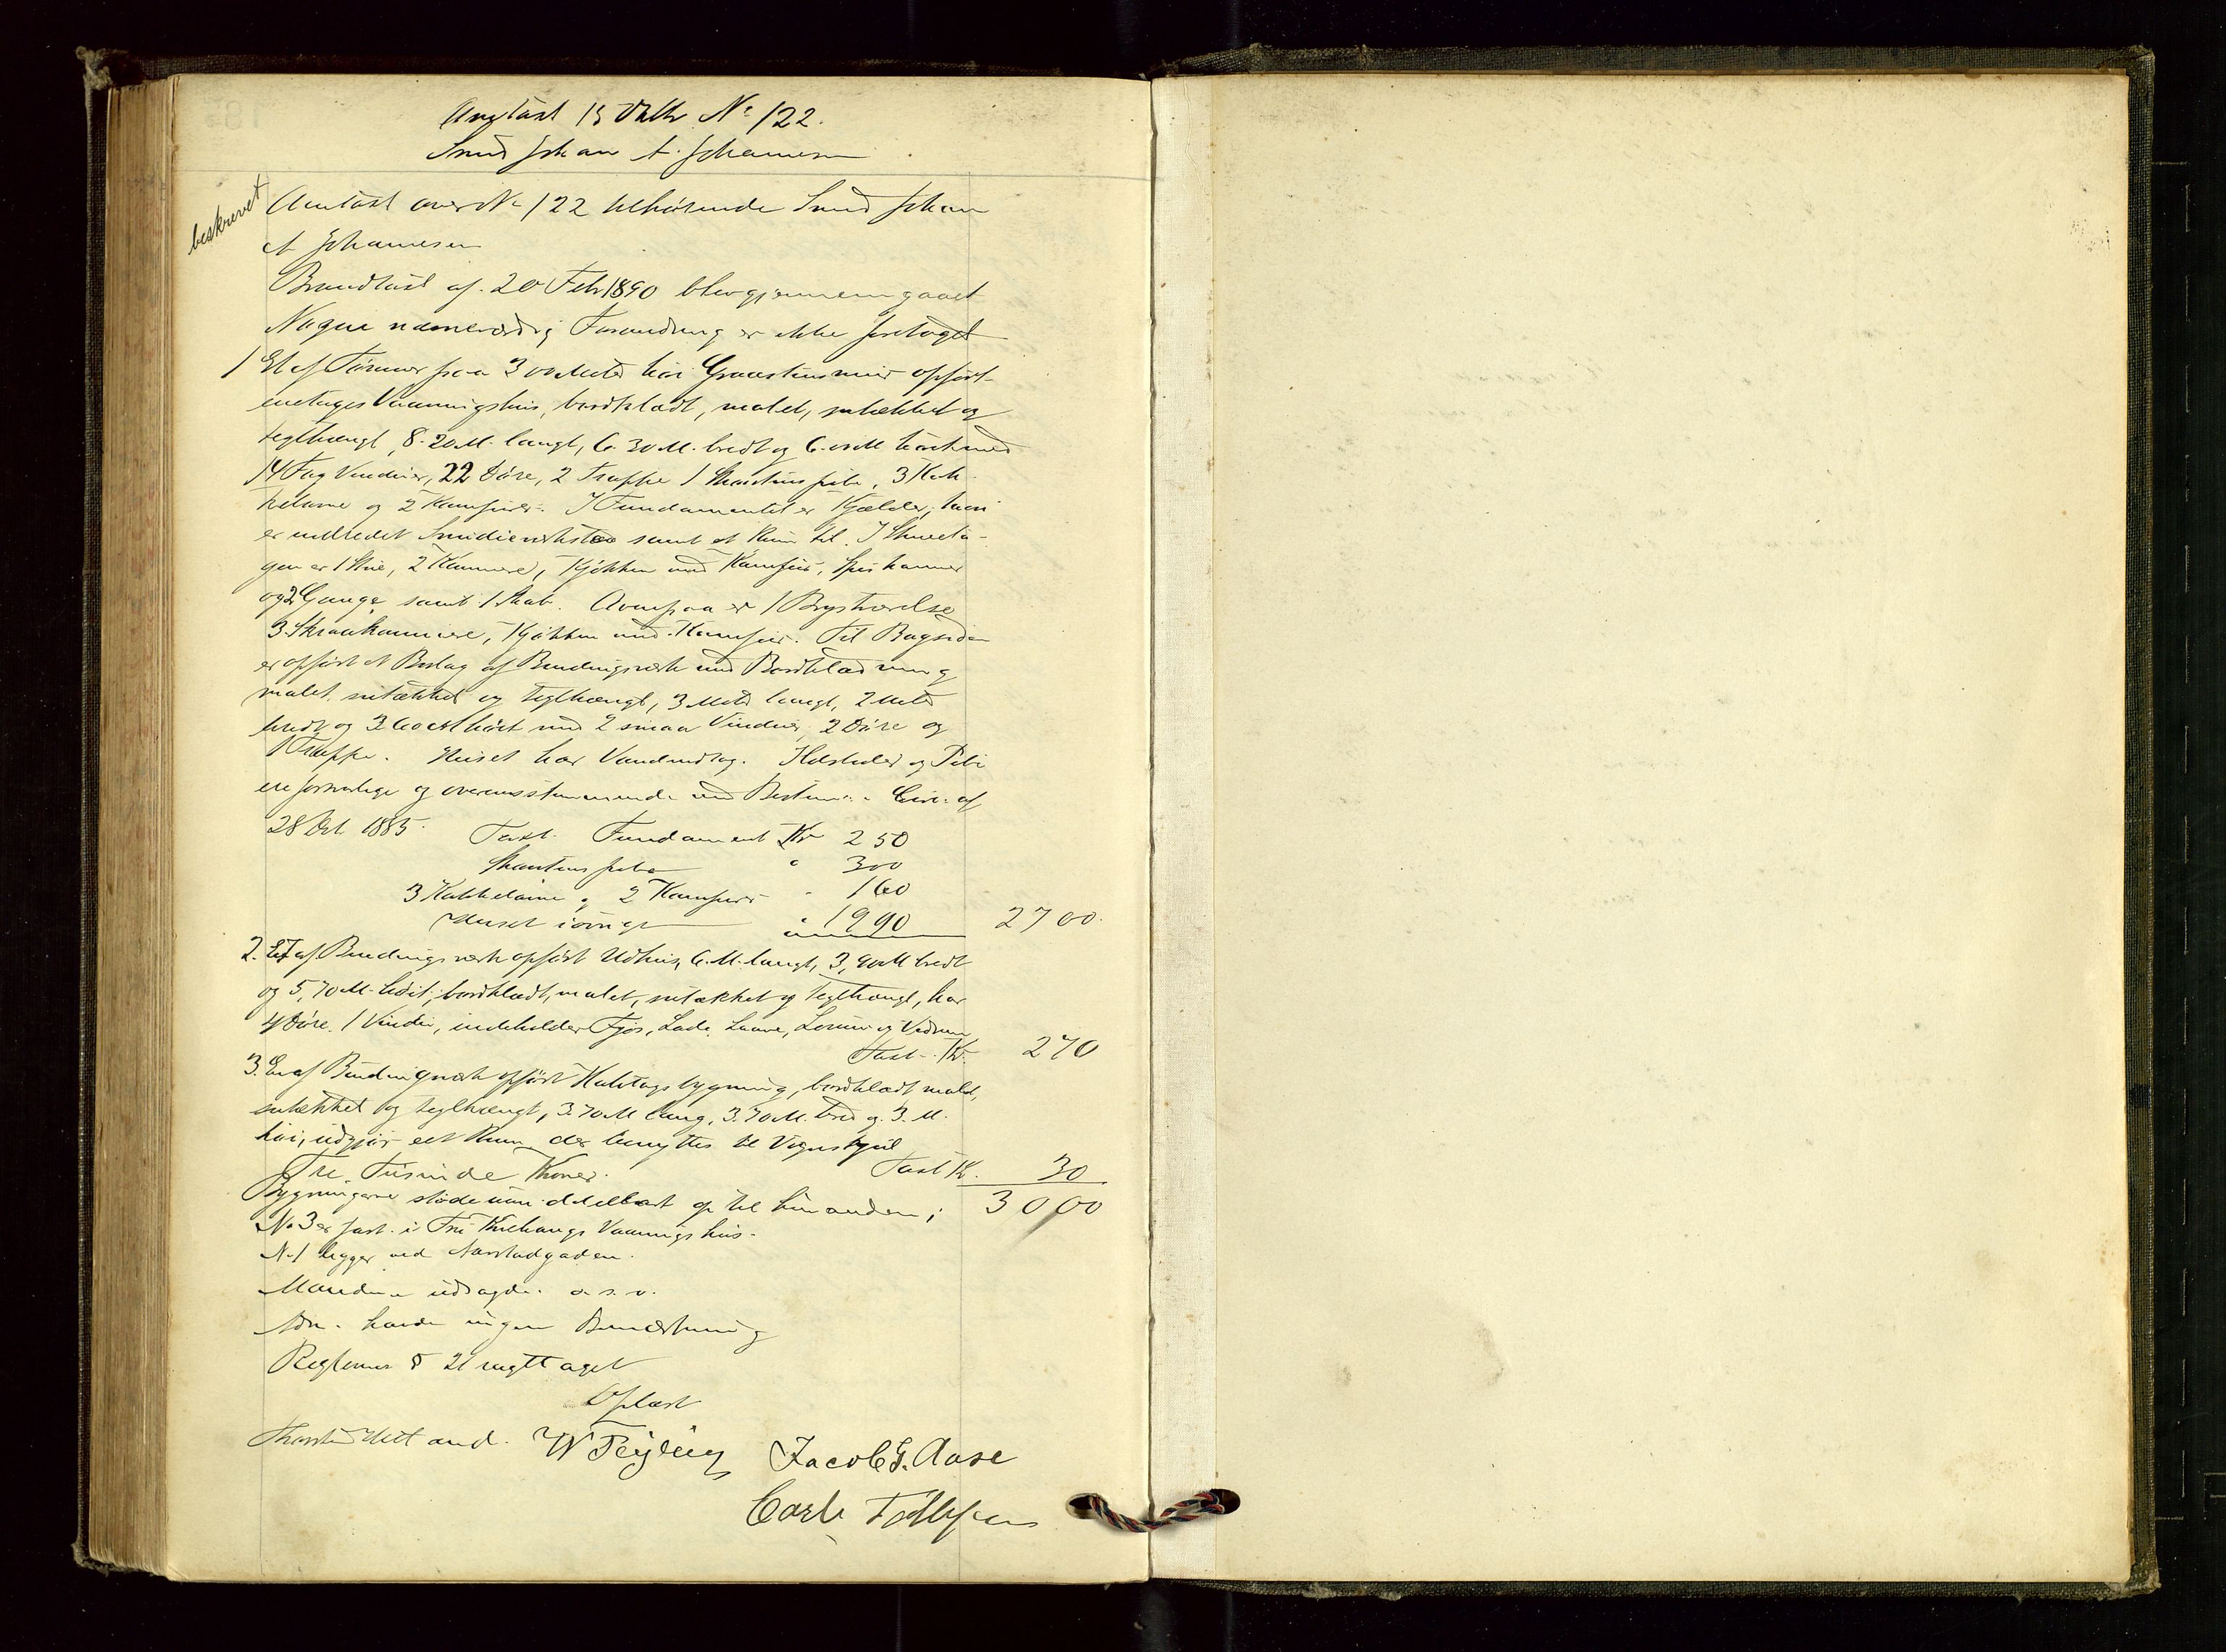 Omtaxt 15 Oktbr No 122.
Smed Johan A. Johannesen
beskrevet
Omtaxt over No 122 tilhørende Smed Johan
A Johannesen
Brandtaxt af 20 Febr 1890 blev gjennemgaaet
Nogen nævneværdig Forandring er ikke foretaget
1 Et af Tømmer paa 3 00 Meter høi Graastensmur opført
enetages Vaaningshus, bordklædt, malet, undertækket og
teglhængt, 8.20 M. langt, 6.30 M. bredt og 6.00 M høit med
14 Fag Vinduer, 22 Døre, 2 Trappe 1 Skorstenspibe, 3 Kak-
kelovne og 2 Komfurer. I Fundamentet er Kjælder, hvori
er indredet Smedieværksted samt et Rum til. I Stueeta-
gen er 1 Stue, 2 Kammere, Kjøkken med Komfur, Spiskammer
og 2 Gange samt 1 Skab. Ovenpaa er 1 Brystværelse
3 Skraakammere, Kjøkken med Komfur. Til Bagsiden
er opført et Bislag af Bindingsværk med Bordklædning
malet, undertækket og teglhængt, 3 Meter langt, 2 Meter
bredt og 3.60 M høit med 2 smaa Vinduer, 2 Døre og
1 Trappe. Huset har Vandindlæg. Ildsteder og Pibe
ere forsvarlige og overensstemmende med Bestem. i Circ. af
28 Oct 1885. Taxt. Fundament Kr 250
Skorstenspibe " 300
3 Kakkelovne og 2 Komfurer " 160
Huset iøvrigt " 1990 2700.
2. Et af Bindingsværk opført Udhus, 6 M. langt, 3,90 M bredt
og 5,70 M. høit, bordklædt, malet, undertækket og teglhængt, har
4 Døre, 1 Vindu, indeholder Fjøs, Lade, Laave, Lorum og Vedrum
Taxt Kr. 270
3. En af Bindingsværk opført Halvtagsbygning, bordklædt, malet,
undertækket og teglhængt, 3.70 M lang, 3.70 M. bred og 3. M.
høi, udgjør et Rum der benyttes til Vognskjul
Taxt Kr. 30
Tre Tusinde Kroner. 3000
Bygningerne støde umiddelbart op til hinanden;
No 3 er fast i Vaaningshus.
No 1 ligger ved gaden.
Manden udsagde o. s. v.
Adm. havde ingen Bemærkning
Reglem § 21 iagttaget
Oplæst
W Jacob G. Aase
Carl Tollefsen